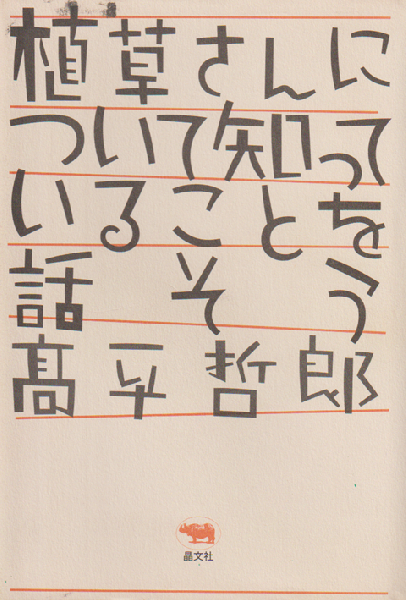 植草さんに
ついて知って
いることを
話そう
髙平哲郎
晶文社